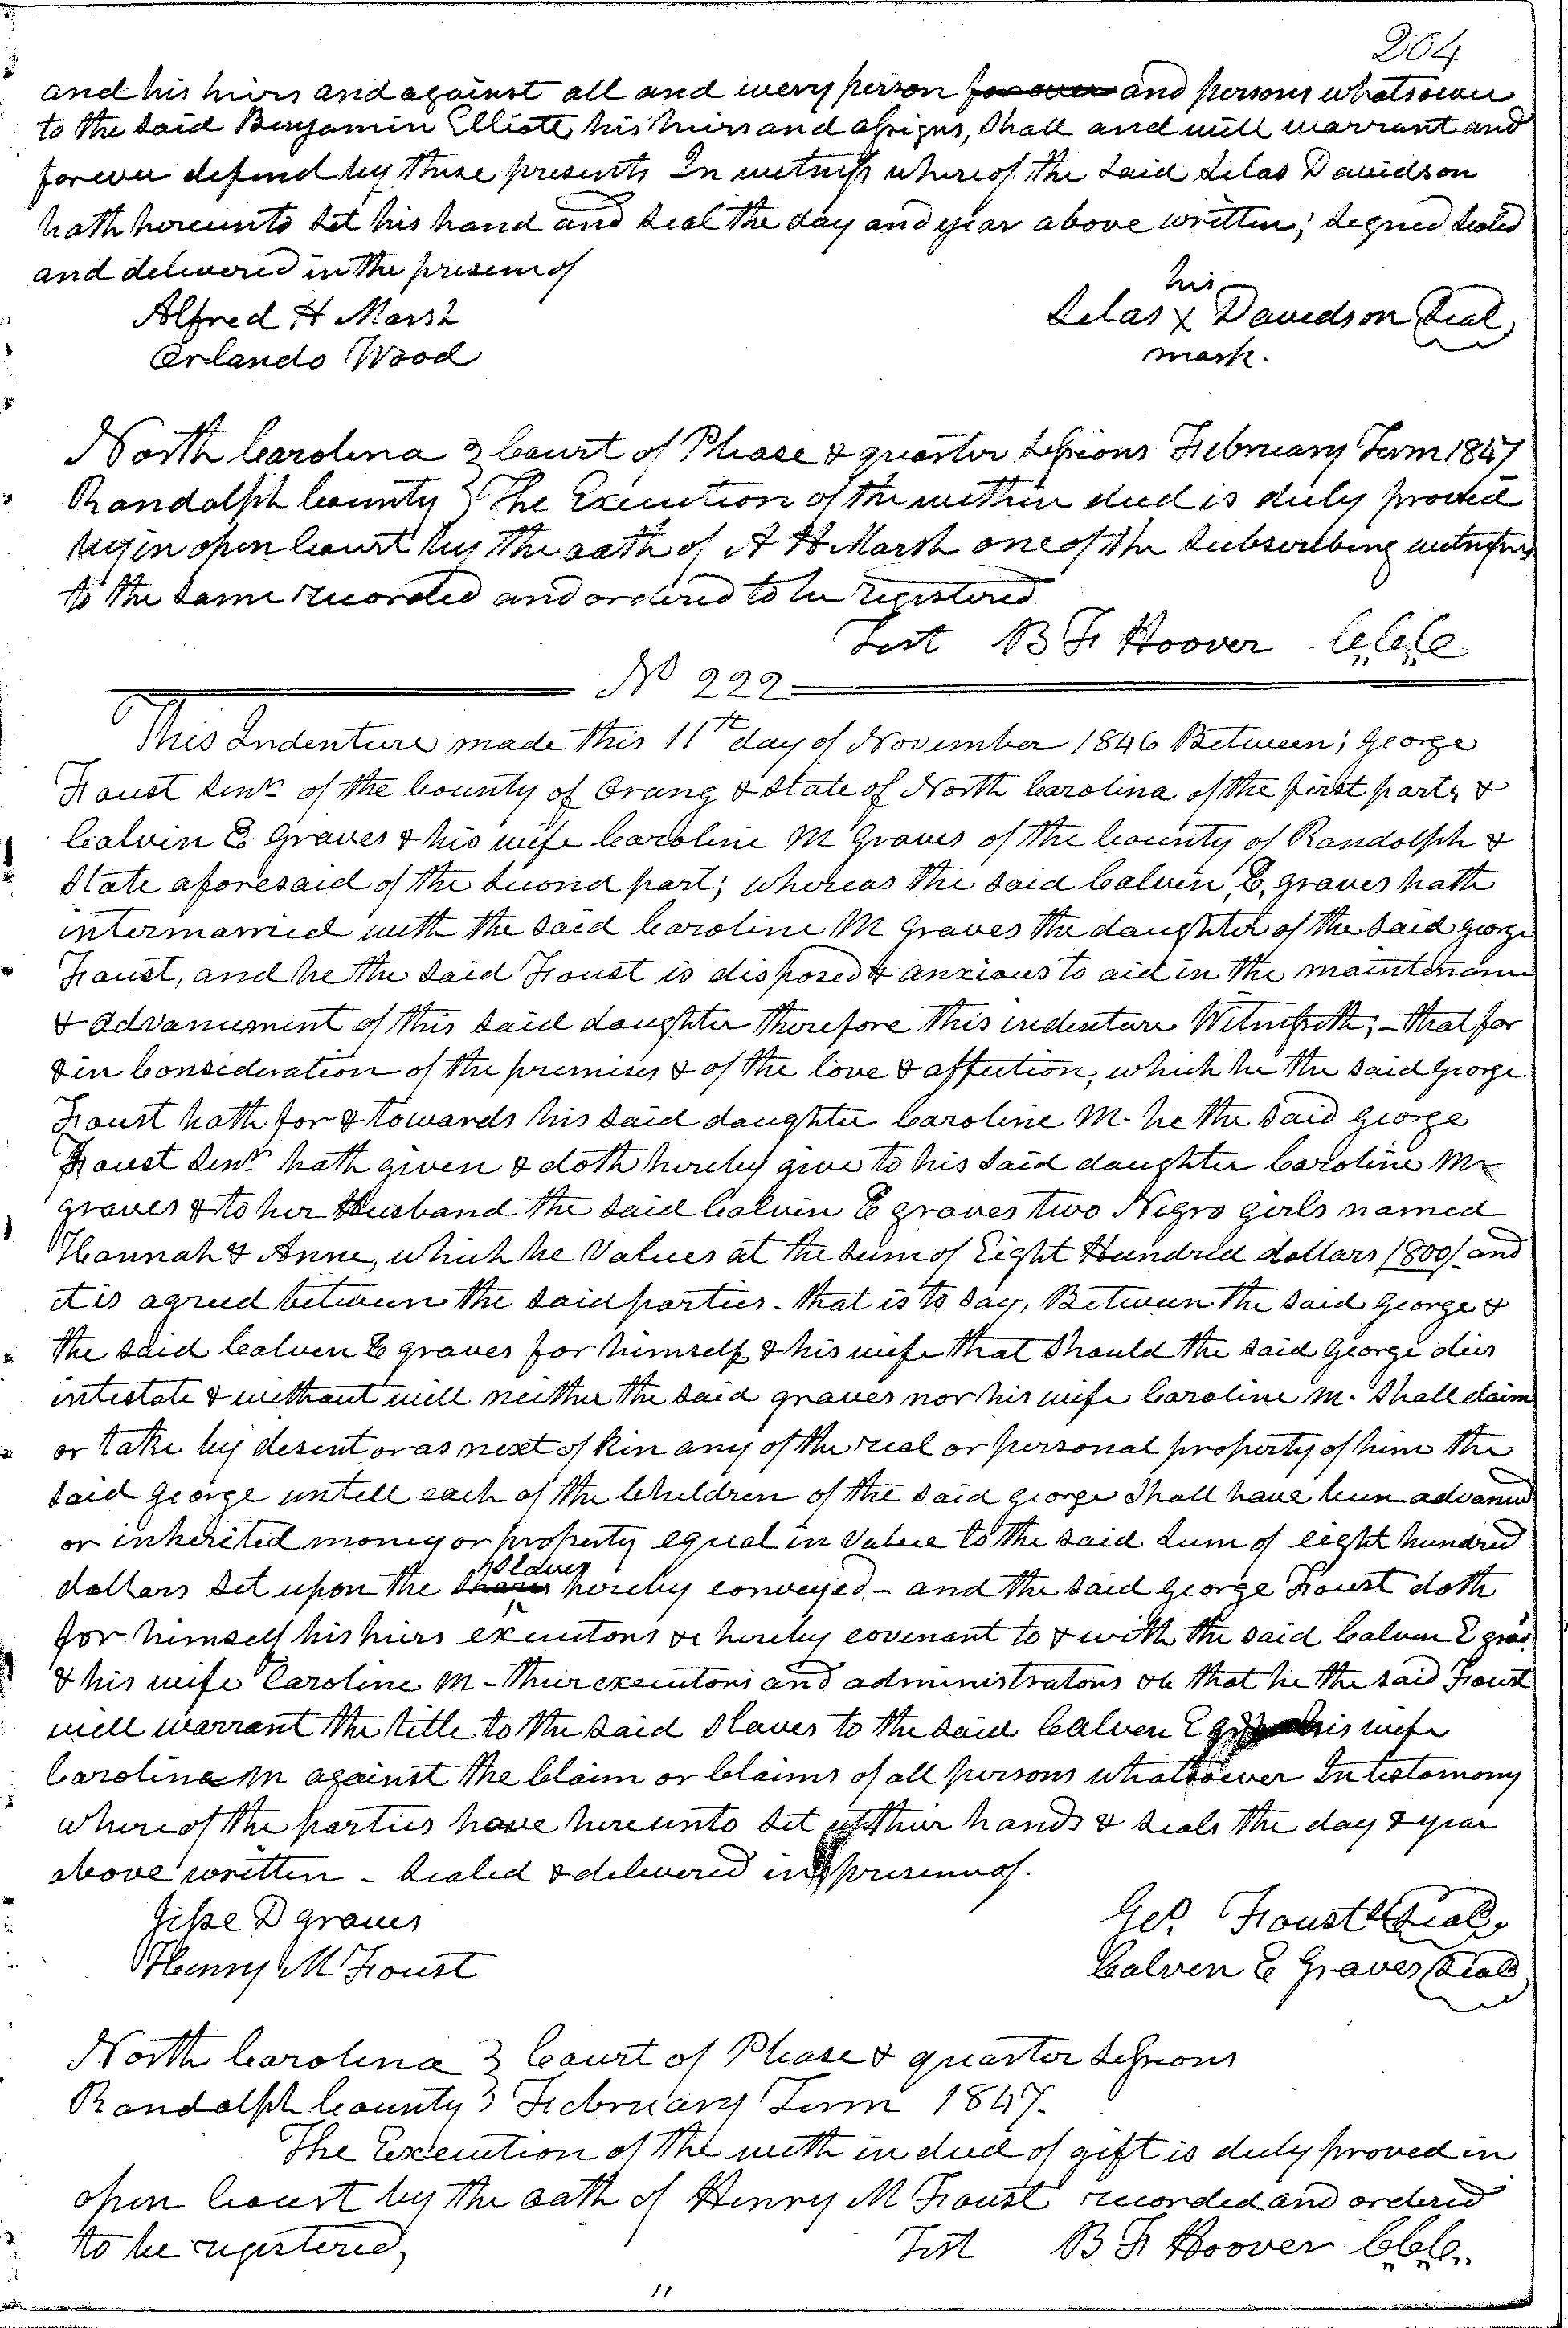 264
and his heirs and against all and every person for ever and persons whatsoever
to the said Benjamin Elliott, his heirs and assigns, shall and will warrant and
forever defend by these presents In witness whereof the said Silas Davidson
hath hereunto set his hand and seal the day and year above written; signed sealed
and delivered in the presence of
his
Alfred H Marsh Silas X Davidson Seal
Orlando Wood mark.
North Carolina } Court of Please & quarter Sessions February Term 1847
Randolph County } The Execution of the within deed is duly proved
in open Court by the oath of A H Marsh one of the Subscribing witnesses
to the same recorded and ordered to be registered
Test B F Hoover C.C.C.
No 222
This Indenture made this 11th day of November 1846 Between; George
Foust Senr of the County of Orang & State of North Carolina of the first part, &
Calvin E Graves & his wife Caroline M Graves of the County of Randolph &
State aforesaid of the second part; whereas the said Calvin, E, graves hath
intermarried with the said Caroline M Graves the daughter of the said george
Foust, and he the said Foust is disposed & anxious to aid in the maintenance
& advancement of this said daughter therefore this indenture Witnesseth; - that for
& in Consideration of the premises & of the love & affection, which he the said george
Foust hath for & towards his said daughter Caroline M. he the said George
Foust Senr hath given & doth hereby give to his said daughter Caroline M
graves & to her Husband the said Calvin E graves two Negro girls named
Hannah & Anne, which he Values at the sum of Eight Hundred dollars /800/ and
it is agreed between the said parties - that is to say, Between the said George &
the said Calven E graves for himself & his wife that should the said George dies
intestate & without will neither the said graves nor his wife Caroline M. Shall claim
or take by desent or as next of kin any of the real or personal property of him the
said george untill each of the Children of the said george Shall have been advanced
or inherited money or property equal in Value to the said sum of eight hundred
slaves
dollars set upon the hereby conveyed - and the said George Foust doth
for himself his heirs executors &c hereby covenant to & with the said Calven E graves
& his wife Caroline M - their executors and administrators &c that he the said Foust
will warrant the title to the said Slaves to the said Calven E his wife
Carolina M against the Claim or Claims of all persons whatsoever In testamony
whereof the parties have hereunto set their hands & seals the day & year
above written - Sealed & delivered in presence of.
Jesse D graves Geo. Foust Seal
Henry M Foust Calven E Graves Seal
North Carolina } Court of Please & quarter Sessions
Randolph County } February Term 1847.
The Execution of the with in deed of gift is duly proved in
open Court by the oath of Henry M Foust recorded and ordered
to be registered, Test B F Hoover C.C.C.
"